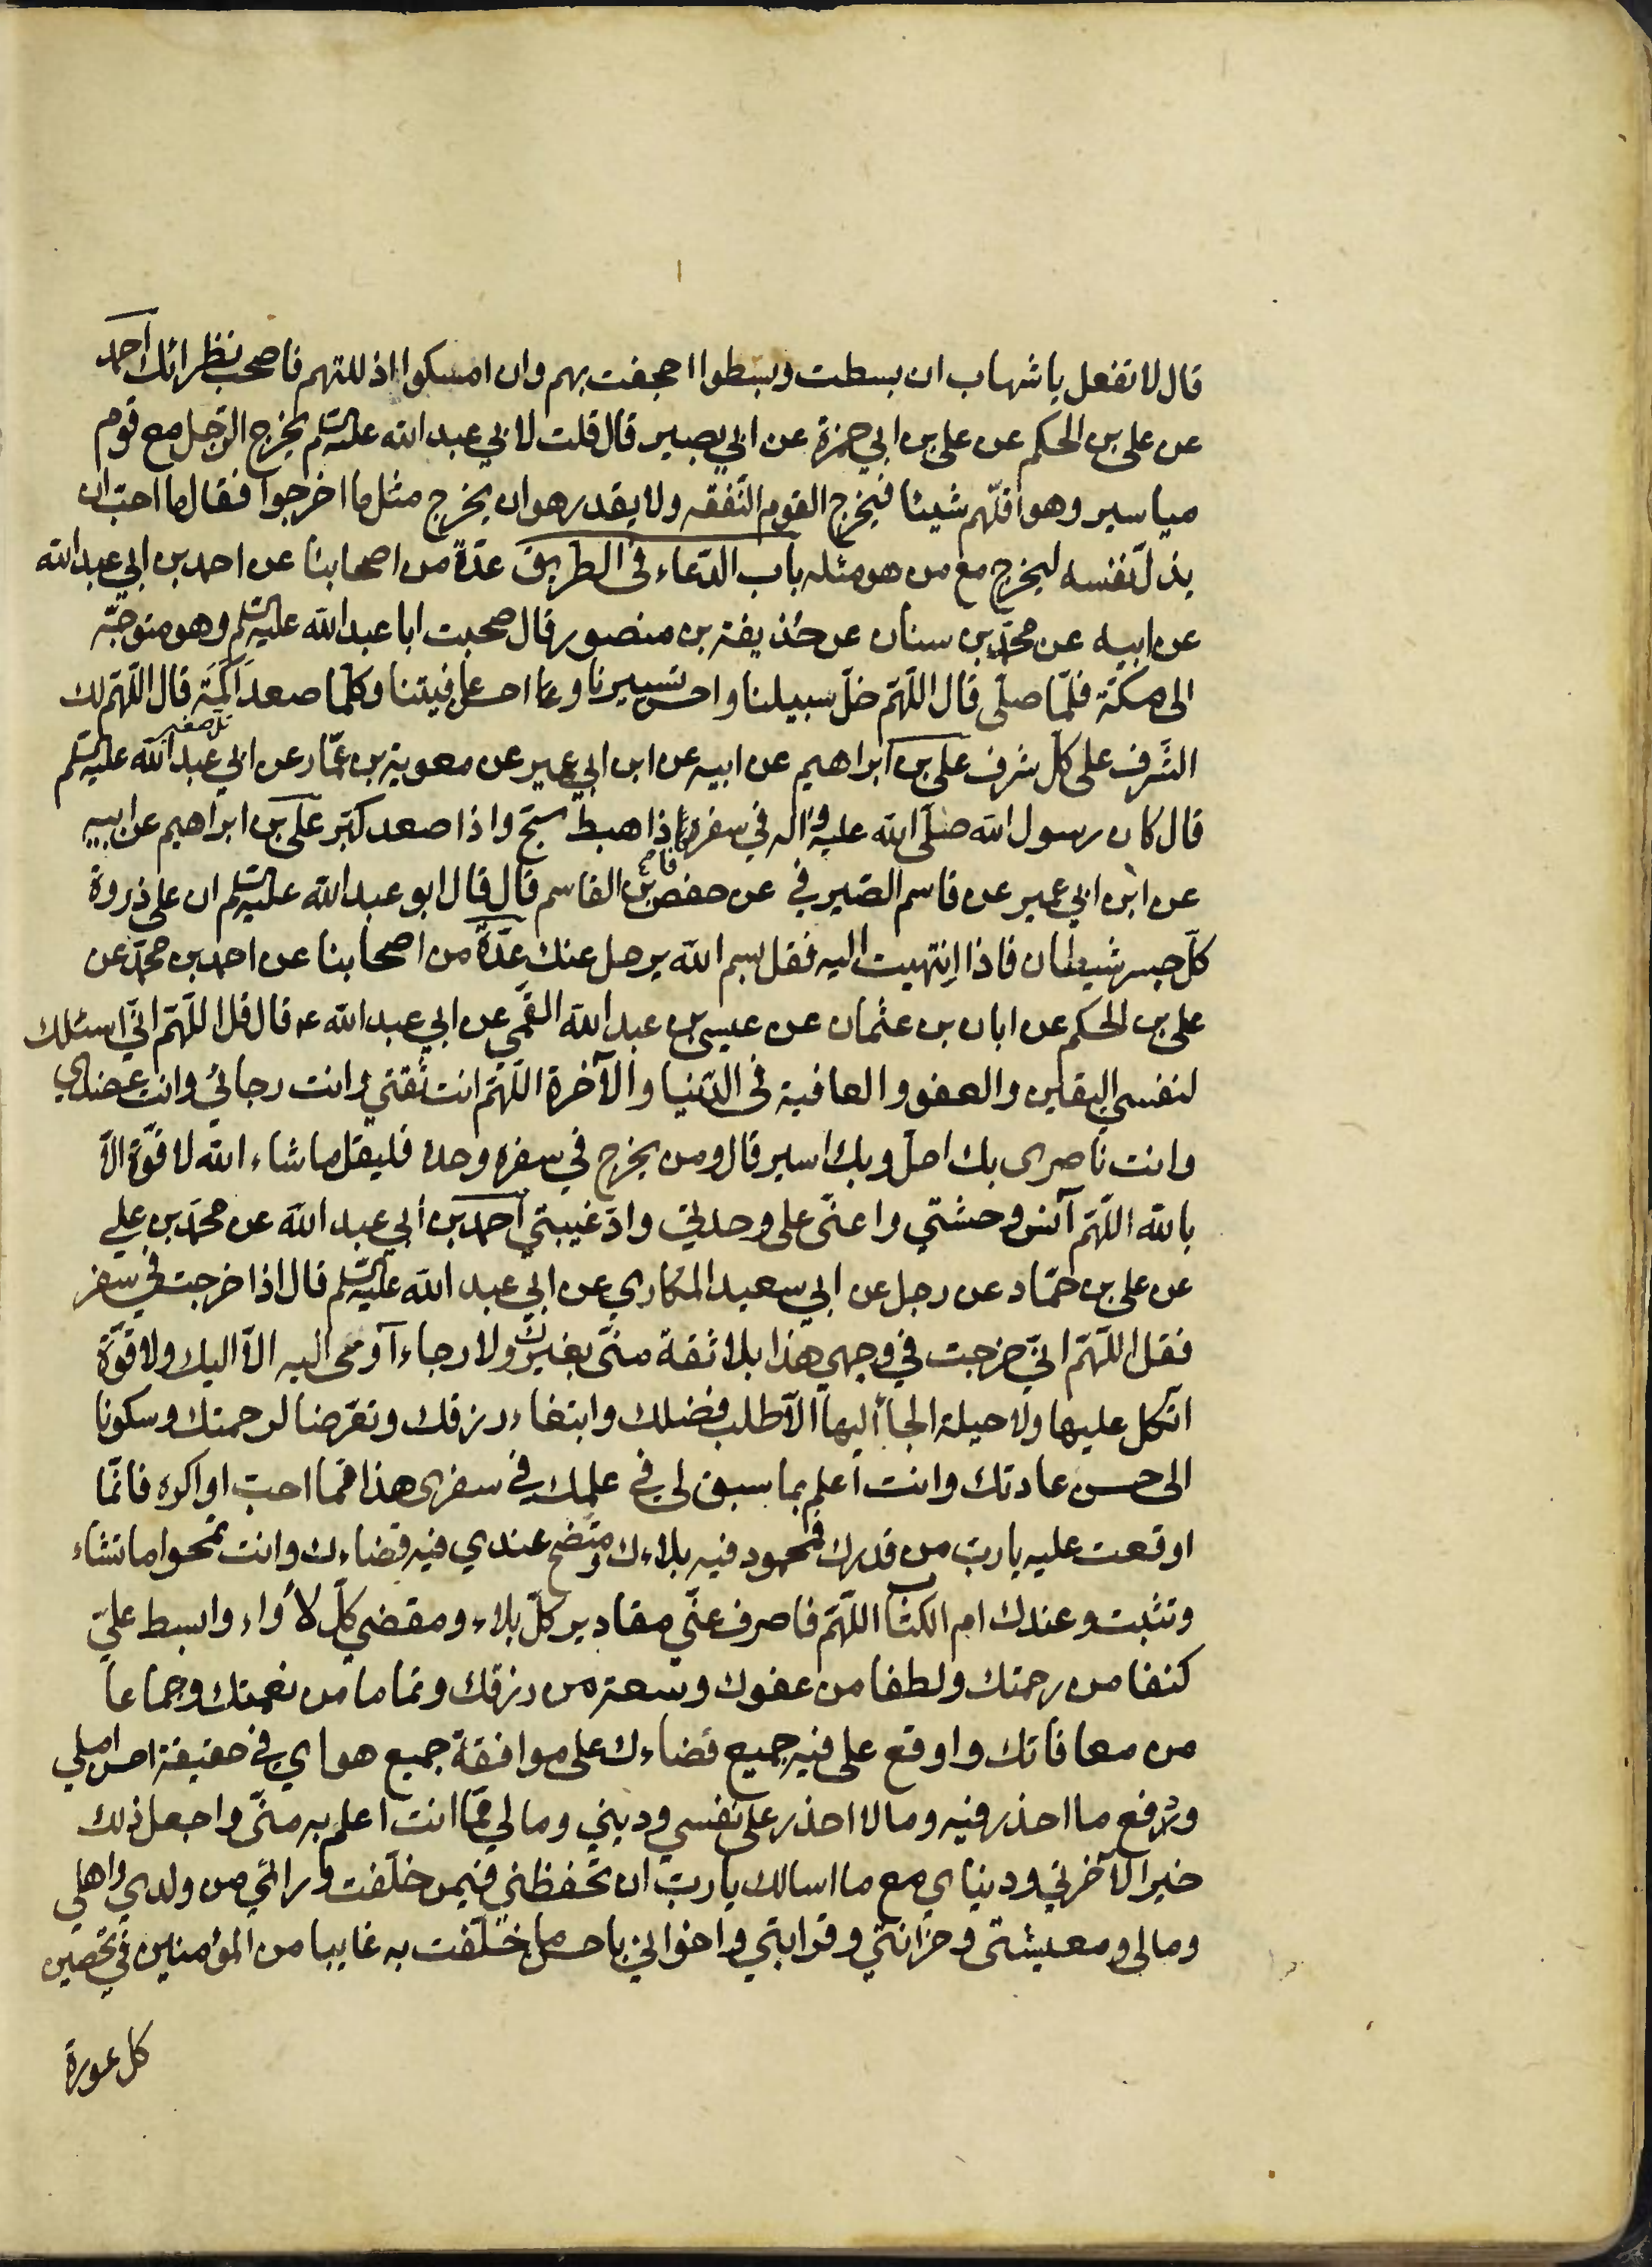 قال لا تفعل يا شهاب ان بسطت وبسطوا اجحفت بهم وان امسكوا اذللتهم فاصحب نظرائك احمد
عن علي بن الحكم عن علي بن ابي حمزة عن ابي بصير قال قلت لابي عبد الله عليه السلم يخرج الرّجل مع قوم
مياسير وهو اقلّهم شيئا فيخرج القوم النّفقه ولا يقدر هو ان يخرج مثل ما اخرجوا فقال ما احبّ ان
يذلّ نفسه ليخرج مع من هو مثله باب الدّعاء في الطريق عدّة من اصحابنا عن احمد بن ابي عبد الله
عن ابيه عن محمّد بن سنان عن حذيفة بن منصور قال صحبت ابا عبد الله عليه السلم وهو متوجّه
الى مكّة فلمّا صلّى قال اللّهمّ خلّ سبيلنا واحسن تسييرنا واحسن عافيتنا وكلّما صعد اكمة قال اللّهمّ لك
تل صغير
الشّرف على كلّ شرف علي بن ابراهيم عن ابيه عن ابن ابي عمير عن معوية بن عمّار عن ابي عبد الله عليه السلم
قال كان رسول الله صلّى الله عليه واله في سفره اذا هبط سبّح واذا صعد كبّر علي بن ابراهيم عن ابيه
عن ابن ابي عمير عن قاسم الصّيرفي عن حفص بن القاسم قال قال ابو عبد الله عليه السلم ان على ذروة
كلّ جسر شيطان فاذا انتهيت اليه فقل بسم الله يرحل عنك عدّة من اصحابنا عن احمد بن محمّد عن
علي بن الحكم عن ابان بن عثمان عن عيسى بن عبد الله القمّي عن ابي عبد الله ع قال قل اللّهمّ انّي اسئلك
لنفسي اليقين والعفو والعافية في الدّنيا والآخرة اللّهمّ انت ثقتي وانت رجائي وانت عضدي
وانت ناصري بك احلّ وبك اسير قال ومن يخرج في سفره وحده فليقل ما شاء الله لا قوّة الّا
بالله اللّهمّ آنس وحشتي واعنّي على وحدتي وادّ غيبتي احمد بن ابي عبد الله عن محمّد بن علي
عن علي بن حمّاد عن رجل عن ابي سعيد المكاري عن ابي عبد الله عليه السلم قال اذا خرجت في سفر
فقل اللّهمّ انّي خرجت في وجهي هذا بلا ثقة منّي بغيرك ولا رجاء آوي اليه الّا اليك ولا قوّة
اتّكل عليها ولا حيلة الجأ اليها الّا طلب فضلك وابتغاء رزقك وتعرّضا لرحمتك وسكونا
الى حسن عادتك وانت اعلم بما سبق لي في علمك في سفري هذا ممّا احبّ او اكره فانّما
اوقعت عليه يا ربّ من قدرك فمحمود فيه بلاءك ومتّضح عندي فيه قضاءك وانت تمحو ما تشاء
وتثبت وعندك ام الكتاب اللّهمّ فاصرف عنّي مقادير كلّ بلاء ومقضي كلّ لأواء وابسط عليّ
كنفا من رحمتك ولطفا من عفوك وسعة من رزقك وتماما من نعمتك وجماعا
من معافاتك واوقع علي فيه جميع قضاءك على موافقة جميع هواي في حقيقة احسن املي
وادفع ما احذر فيه وما لا احذر على نفسي وديني ومالي ممّا انت اعلم به منّي واجعل ذلك
خيرا لآخرتي ودنياي مع ما اسالك يا ربّ ان تحفظني فيمن خلّفت ورائي من ولدي واهلي
ومالي ومعيشتي وحزانتي وقرابتي واخواني باحسن ما خلّفت به غايبا من المؤمنين في تحصين
كل عورة